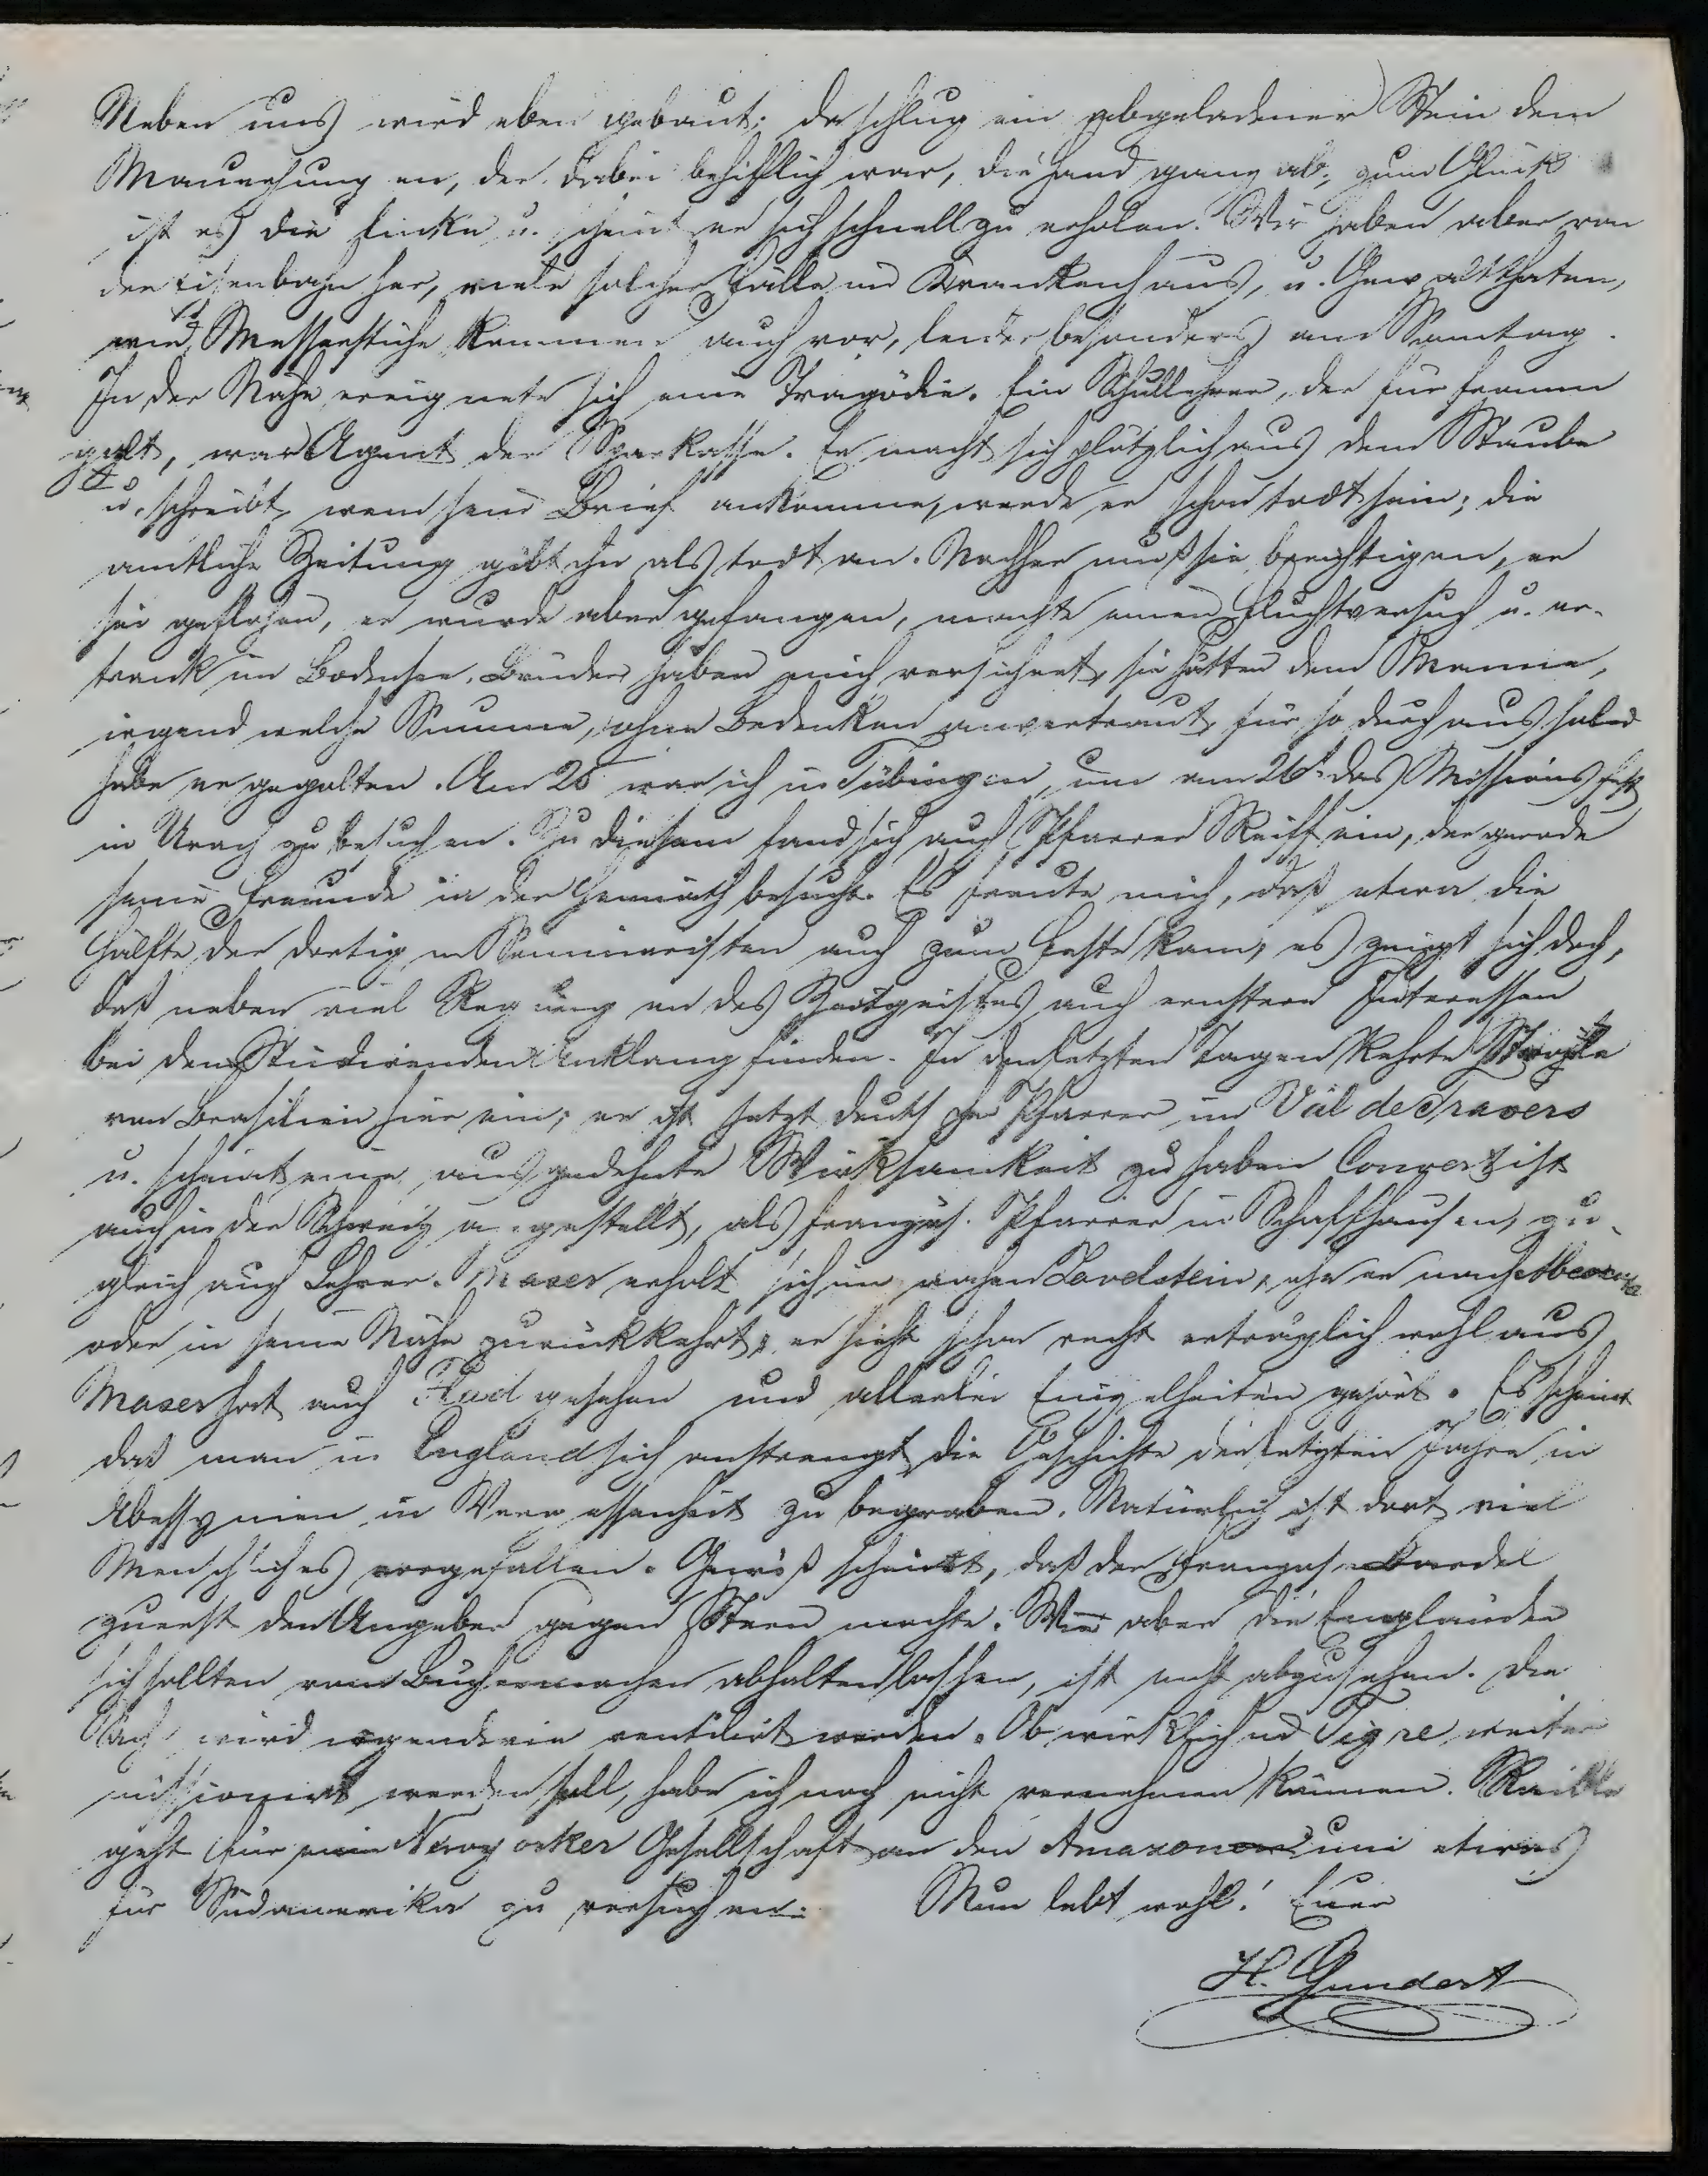 Neben uns wird eben gebaut; da schlug ein abgeladener Stein dem
Maurerjungen, der dabei behilflich war, die Hand ganz ab; zum Glück
ist es die linke u. scheint er sich schnell zu erholen. Wir haben aber von
der Eisenbahn her, viele solcher Fälle im Krankenhaus, u. Gewaltthaten,
wie Messerstiche kommen auch vor, leider besonders am Sonntag.
In der Nähe ereignete sich eine Tragödie. Ein Schullehrer, der für fromm
galt, war Agent der Sparkasse. Er macht sich plötzlich aus dem Staube
u. schreibt, wenn sein Brief ankomme, werde er schon todt sein; die
amtliche Zeitung gibt ihn als todt an. Nachher muß sie berichtigen, er
sei geflohen, er wurde aber gefangen, machte einen Fluchtversuch u. er-
trank im Bodensee. Brüder haben mich versichert, sie hätten dem Manne,
irgend welche Summe, ohne Bedenken anvertraut, für so durchaus solid
habe er gegolten. Am 25 war ich in Tübingen, um am 26t. das Missionsfest
in Urach zu besuchen. Zu diesem fand sich auch Pfarrer Reiff ein, der gerade
seine Freunde in der Heimath besucht. Es freute mich, daß etwa die
Hälfte der dortigen Seminaristen auch zum Feste kam, es zeigt sich doch,
daß neben viel Regungen des Zeitgeistes auch ernstere Interessen
bei den Studirenden Anklang finden. In den letzten Tagen kehrte
von Brasilien hier ein; er ist jetzt deutscher Pfarrer im Val de Travers
u. scheint eine ausgedehnte Wirksamkeit zu haben Convert ist
auch in der Schweiz angestellt, als französ. Pfarrer in Schaffhausen, zu-
gleich auch Lehrer. Maser erholt sich im nahen Zavelstein, ehe er nach
oder in seine Nähe zurückkehrt; er sieht schon recht erträglich wohl aus
Maser hat auch Flad gesehen und allerlei Einzelheiten gehört. Es scheint
daß man in England sich anstrengt die Geschichte der letzten Jahre in
Abessynien in Vergessenheit zu begraben. Natürlich ist dort viel
Menschliches vorgefallen. Gewiß scheint, daß der Franzose Bardel
zuerst den Angeber gegen Stern machte. Wie aber die Engländer
sich sollten vom Büchermachen abhalten lassen, ist nicht abzusehen. Die
Sach wird irgendwie ventilirt werden. Ob wirklich nach Tigre weiter
missionirt werden soll, habe ich noch nicht vernehmen können.
geht für eine Newyorker Gesellschaft an den Amazonen um etwas
für Südamerika zu versuchen. Nun lebt wohl! Euer
H. Gundert